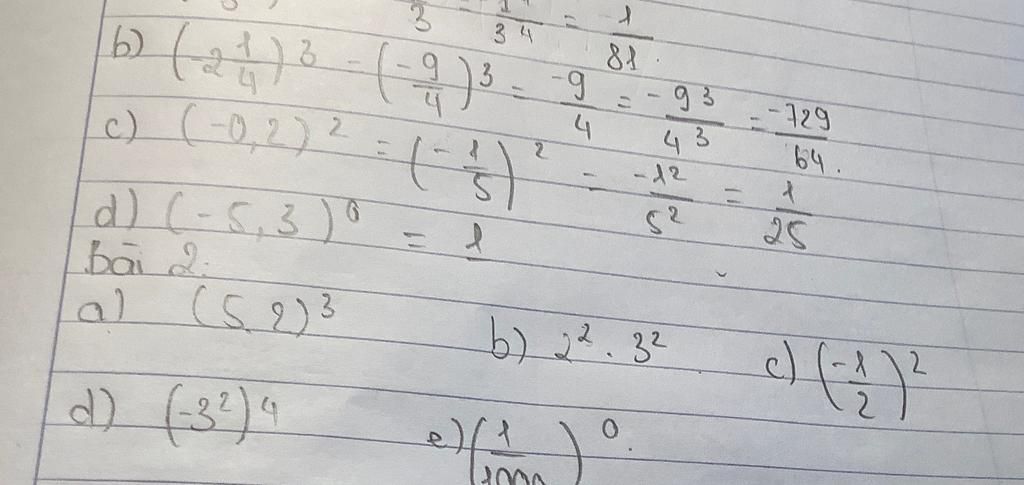 3 = 1⁴/3⁴ = 1/81.
b) (-2 1/4)³ = (-9/4)³ = -9/4 = -9³/4³ = -729/64.
c) (-0,2)² = (-1/5)² = -1²/5² = 1/25
d) (-5,3)⁰ = 1
bài 2:
a) (5 2)³ b) 2² . 3² c) (-1/2)²
d) (-3²)⁴ e) (1/1000)⁰.